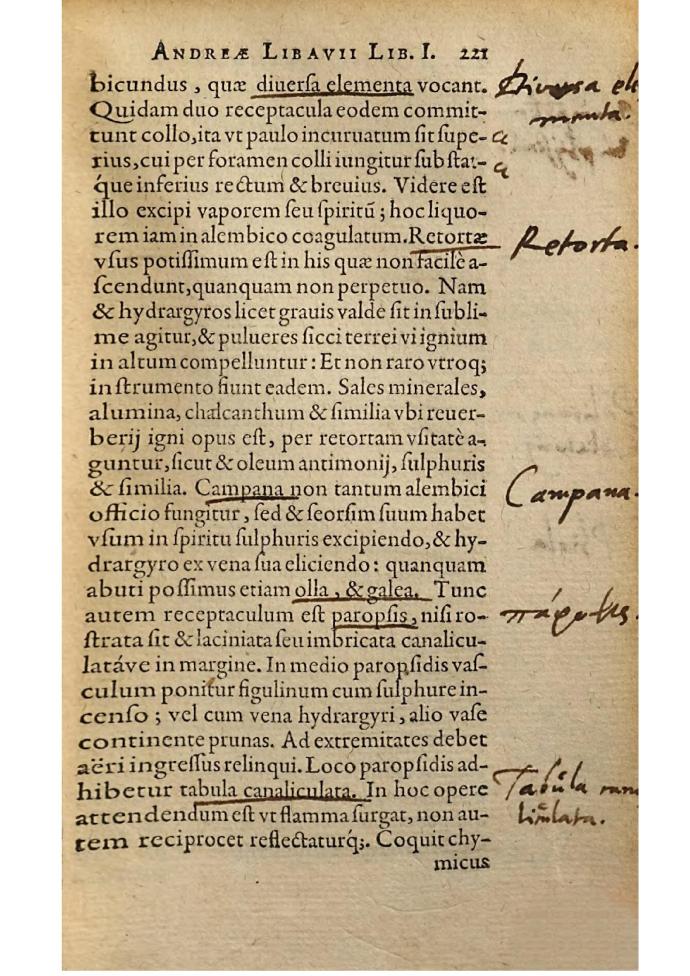 ANDREÆ LIBAVII LIB. I. 221
bicundus, quæ diuerſa elementa vocant.
Diversa ele
menta.
Quidam duo receptacula eodem commit-
tunt collo, ita vt paulo incuruatum ſit ſupe-
rius, cui per foramen colli iungitur ſub ſtat-
q́ue inferius rectum & breuius. Videre eſt
illo excipi vaporem ſeu ſpiritū; hoc liquo-
rem iam in alembico coagulatum. Retortæ
Retorta.
vſus potiſſimum eſt in his quæ non facilè a-
ſcendunt, quanquam non perpetuo. Nam
& hydrargyros licet grauis valde ſit in ſubli-
me agitur, & pulueres ſicci terrei vi ignium
in altum compelluntur: Et non raro vtroq;
inſtrumento fiunt eadem. Sales minerales,
alumina, chalcanthum & ſimilia vbi reuer-
berij igni opus eſt, per retortam vſitatè a-
guntur, ſicut & oleum antimonij, ſulphuris
& ſimilia. Campana non tantum alembici
Campana.
officio fungitur, ſed & ſeorſim ſuum habet
vſum in ſpiritu ſulphuris excipiendo, & hy-
drargyro ex vena ſua eliciendo: quanquam
abuti poſſimus etiam olla, & galea. Tunc
autem receptaculum eſt paropſis, niſi ro-
ſtrata ſit & laciniata ſeu imbricata canalicu-
latáve in margine. In medio paropſidis vaſ-
culum ponitur figulinum cum ſulphure in-
cenſo; vel cum vena hydrargyri, alio vaſe
continente prunas. Ad extremitates debet
aëri ingreſſus relinqui. Loco paropſidis ad-
hibetur tabula canaliculata. In hoc opere
Tabula
attendendum eſt vt flamma ſurgat, non au-
tem reciprocet reflectaturq́;. Coquit chy-
micus